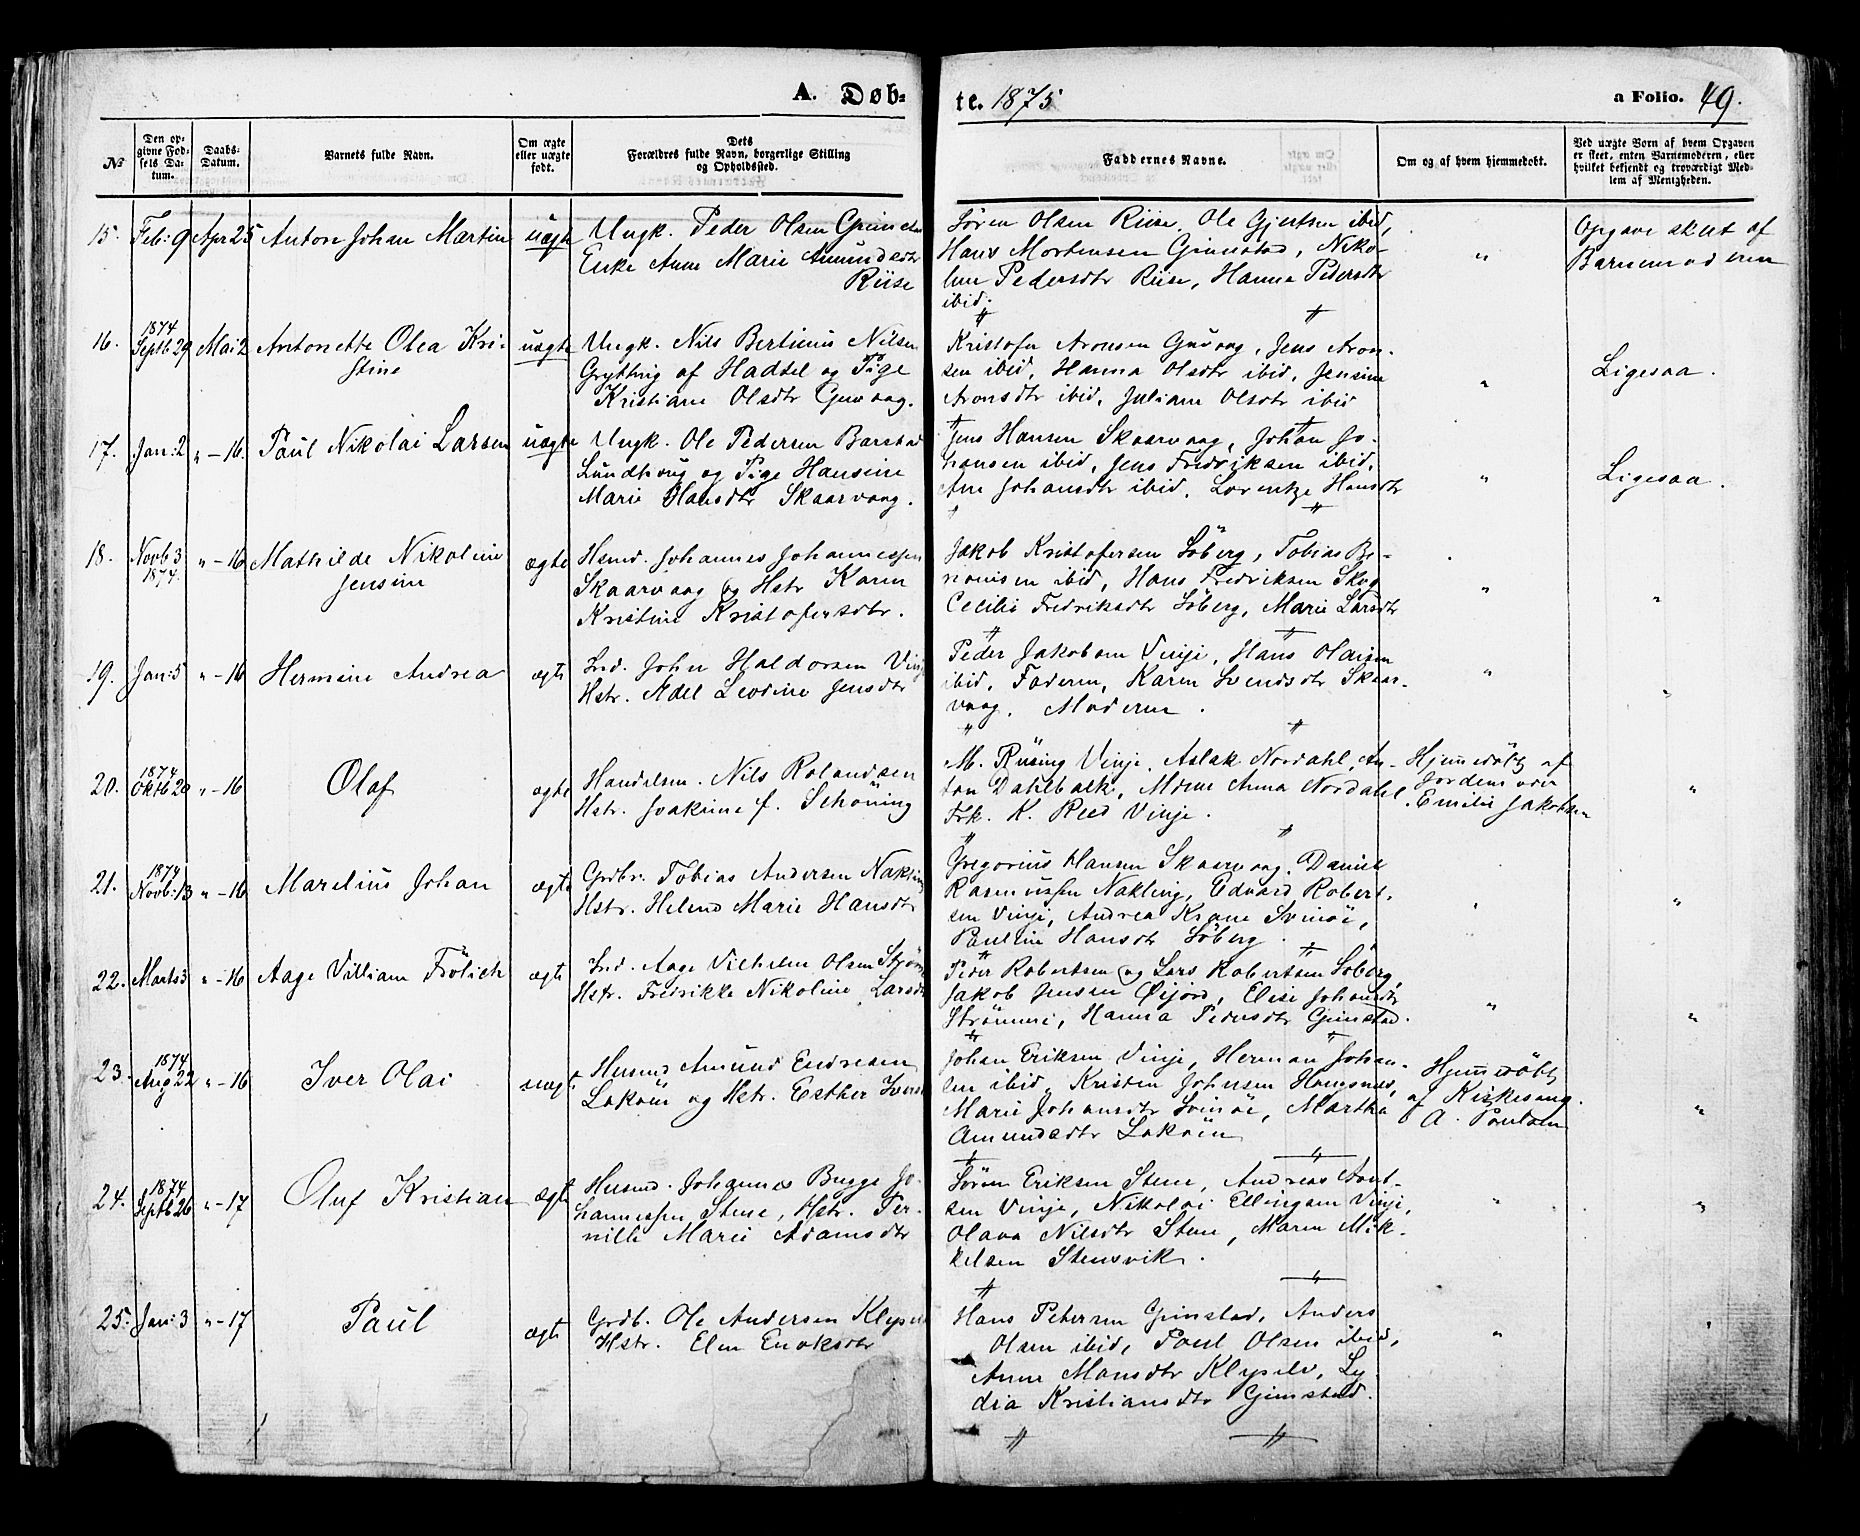 A. Døb-
te. 1875
a Folio. 49.
No
Den op-
givne Fød-
sels Da-
tum.
Daabs-
Datum.
Barnets fulde Navn.
Om ægte
eller uægte
født.
Dets
Forældres fulde Navn, borgerlige Stilling
og Opholdssted.
Faddernes Navne.
Om og af hvem hjemmedøbt.
Ved uægte Børn af hvem Opgaven
er skeet, enten Barnemoderen, eller
hvilket bekjendt og troværdigt Med-
lem af Menigheden.
15. Feb: 9 Apr 25 Anton Johan Martin uægte
Ungk. Peder Olsen Grimstad
Enke Anne Marie Amundsdtr
Riise
Søren Olsen Riise, Ole Gjertsen ibid,
Hans Mortensen Grimstad, Niko-
line Pedersdtr Riise, Hanna Pedersdtr
ibid.
"
Opgave skeet af
Barnemoderen
16. 1874
Septb 29 Mai 2 Antonette Olea Kri-
stine
uægte
Ungk. Nils Bertinus Nilsen
Gryttng af Hadsel og Pige
Kristiane Olsdtr Guvaag.
Kristofer Aronsen Guvaag, Jens Aron-
sen ibid, Hanna Olsdtr ibid, Jensine
Aronsdtr ibid, Juliane Olsdtr ibid
"
Ligesaa.
17. Jan: 2 " - 16. Paul Nikolai Larsen uægte
Ungk. Ole Pedersen Barstad
Lundhoug og Pige Hansine
Marie Hansdtr Skaarvaag.
Jens Hansen Skaarvaag, Johan Jo-
hansen ibid, Jens Fredriksen ibid,
Ane Johansdtr ibid, Lorentze Hansdtr
"
Ligesaa.
18. Novb 3
1874. " - 16 Mathilde Nikoline
Jensine
ægte
Hsmd. Johannes Johannessen
Skaarvaag og Hstr Karen
Kristine Kristofersdtr.
Jakob Kristofersen Söberg, Tobias Be-
nonisen ibid, Hans Fredriksen Skog
Cecilie Fredriksdtr Söberg, Marie Larsdtr
" "
19. Jan: 5 " - 16 Hermine Andrea ægte
Ind. John Haldorsen Vinje
Hstr. Adel Leodine Jensdtr
Peder Jakobsen Vinje, Hans Olaisen
ibid, Faderen, Karen Svendsdtr Skaar-
vaag, Moderen.
" "
20. 1874
Oktb 20 " - 16 Olaf ægte
Handelsm. Nils Rolandsen
Hstr. Joakime f. Schöning
M. Rüsing Vinje, Aslak Nordahl, An-
ton Dahlback, Mdme Anna Nordahl,
Frk. K. Reed Vinje.
Hjemmedöbt af
Jordemoder
Emilie Jakobsen
"
21. 1874
Novb: 13 " - 16 Marelius Johan ægte
Grdbr. Tobias Andersen Nakling
Hstr. Helene Marie Hansdtr
Gregorius Hansen Skaarvaag, Daniel
Rasmussen Nakling, Edvard Robert-
sen Vinje, Andrea Krane Svinöe,
Pauline Hansdtr Söberg.
" "
22. Marts 3 " - 16 Aage Villiam Frölich ægte
Ind. Aage Vilhelm Olsen Strömme
Hstr. Fredrikke Nikoline Larsdtr
Peder Robertsen og Lars Robertsen Söberg,
Jakob Jensen Øijord, Elise Johansdtr
Strömme, Hanna Pedersdtr Grimstad.
" "
23. 1874
Aug 22 " - 16 Iver Olai uægte
Husmd Amund Endresen
Laköen og Hstr. Esther Iversdtr
Johan Eriksen Vinje, Herman Johan-
sen ibid, Kristen Johnsen Haugsnes,
Marie Johansdtr Svinöe, Martha
Amundsdtr Laköen
Hjemmedöbt
af Kirkesang.
A. Paulsen
"
24. 1874
Septb 26 " - 17 Oluf Kristian ægte
Husmd. Johannes Bugge Jo-
hannessen Stene, Hstr. Per-
nille Marie Adamsdtr
Sören Eriksen Stene, Andreas Arnt-
sen Vinje, Nikolai Ellingsen Vinje,
Olava Nilsdtr Stene, Maren Mik-
kelsen Stensvik.
" "
25. Jan: 3 " - 17 Paul ægte
Grdb. Ole Andersen Klypen
Hstr. Elen Enoksdtr
Hans Petersen Grimstad, Anders
Olsen ibid, Poul Olsen ibid,
Anne Hansdtr Klypen, Ly-
dia Kristiansdtr Grimstad.
"